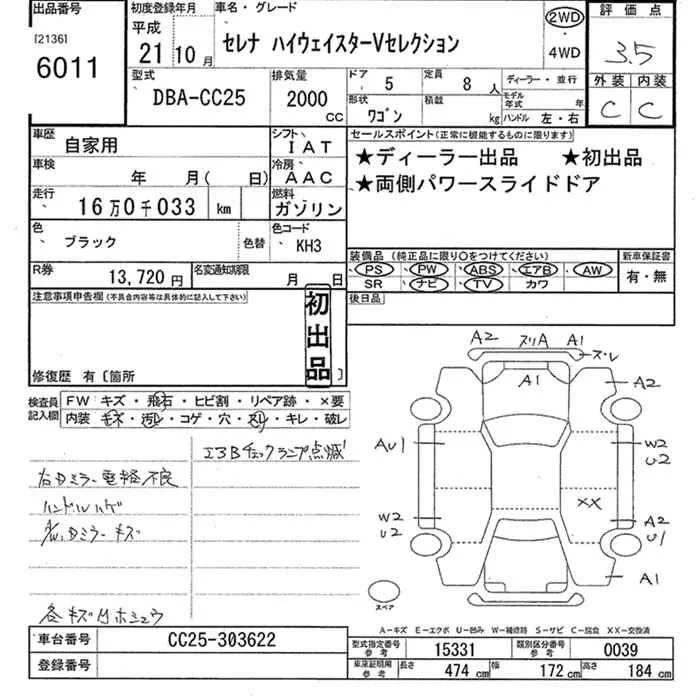 出品番号
[2136]
6011
初度登録年月
平成
21年 10月
車名・グレード
セレナ ハイウェイスターVセレクション
2WD
・
4WD
評価点
3.5
外装 内装
C C
型式
DBA-CC25
排気量
2000 CC
ドア 5
定員 8人
ディーラー・並行
形状 ワゴン
積載 kg
モデル年式 年
ハンドル 左・右
車歴 自家用
シフト IAT
車検 年 月( 日)
冷房 AAC
走行 16万0千033 km
燃料 ガソリン
色 ブラック
色替
色コード KH3
R券 13,720円
名変通知期限 月 日
セールスポイント(正常に機能するものに限ります)
★ディーラー出品 ★初出品
★両側パワースライドドア
装備品(純正品に限り〇をつけてください)
PS PW ABS エアB AW
SR ナビ TV カワ
新車保証書
有・無
後日品
注意事項申告欄(不具合内容等は具体的に記入して下さい)
初出品
修復歴 有〔箇所 〕
検査員記入欄
FW キズ・飛石・ヒビ割・リペア跡・×要
内装 モネ・汚レ・コゲ・穴・スレ・キレ・破レ
エアBチェックランプ点滅
右Dミラー電軽不良
ハンドルハゲ
Dミラーキズ
各キズ
A2 スリA A1
スレ
A1
A2
AU1
W2
U2
XX
W2
U2
A2
U1
A1
スペア
A-キズ E-エクボ U-凹み W-補修跡 S-サビ C-腐食 XX-交換済
車台番号 CC25-303622
登録番号
型式指定番号参考 15331
類別区分番号参考 0039
車庫証明用参考 長さ 474cm 幅 172cm 高さ 184cm